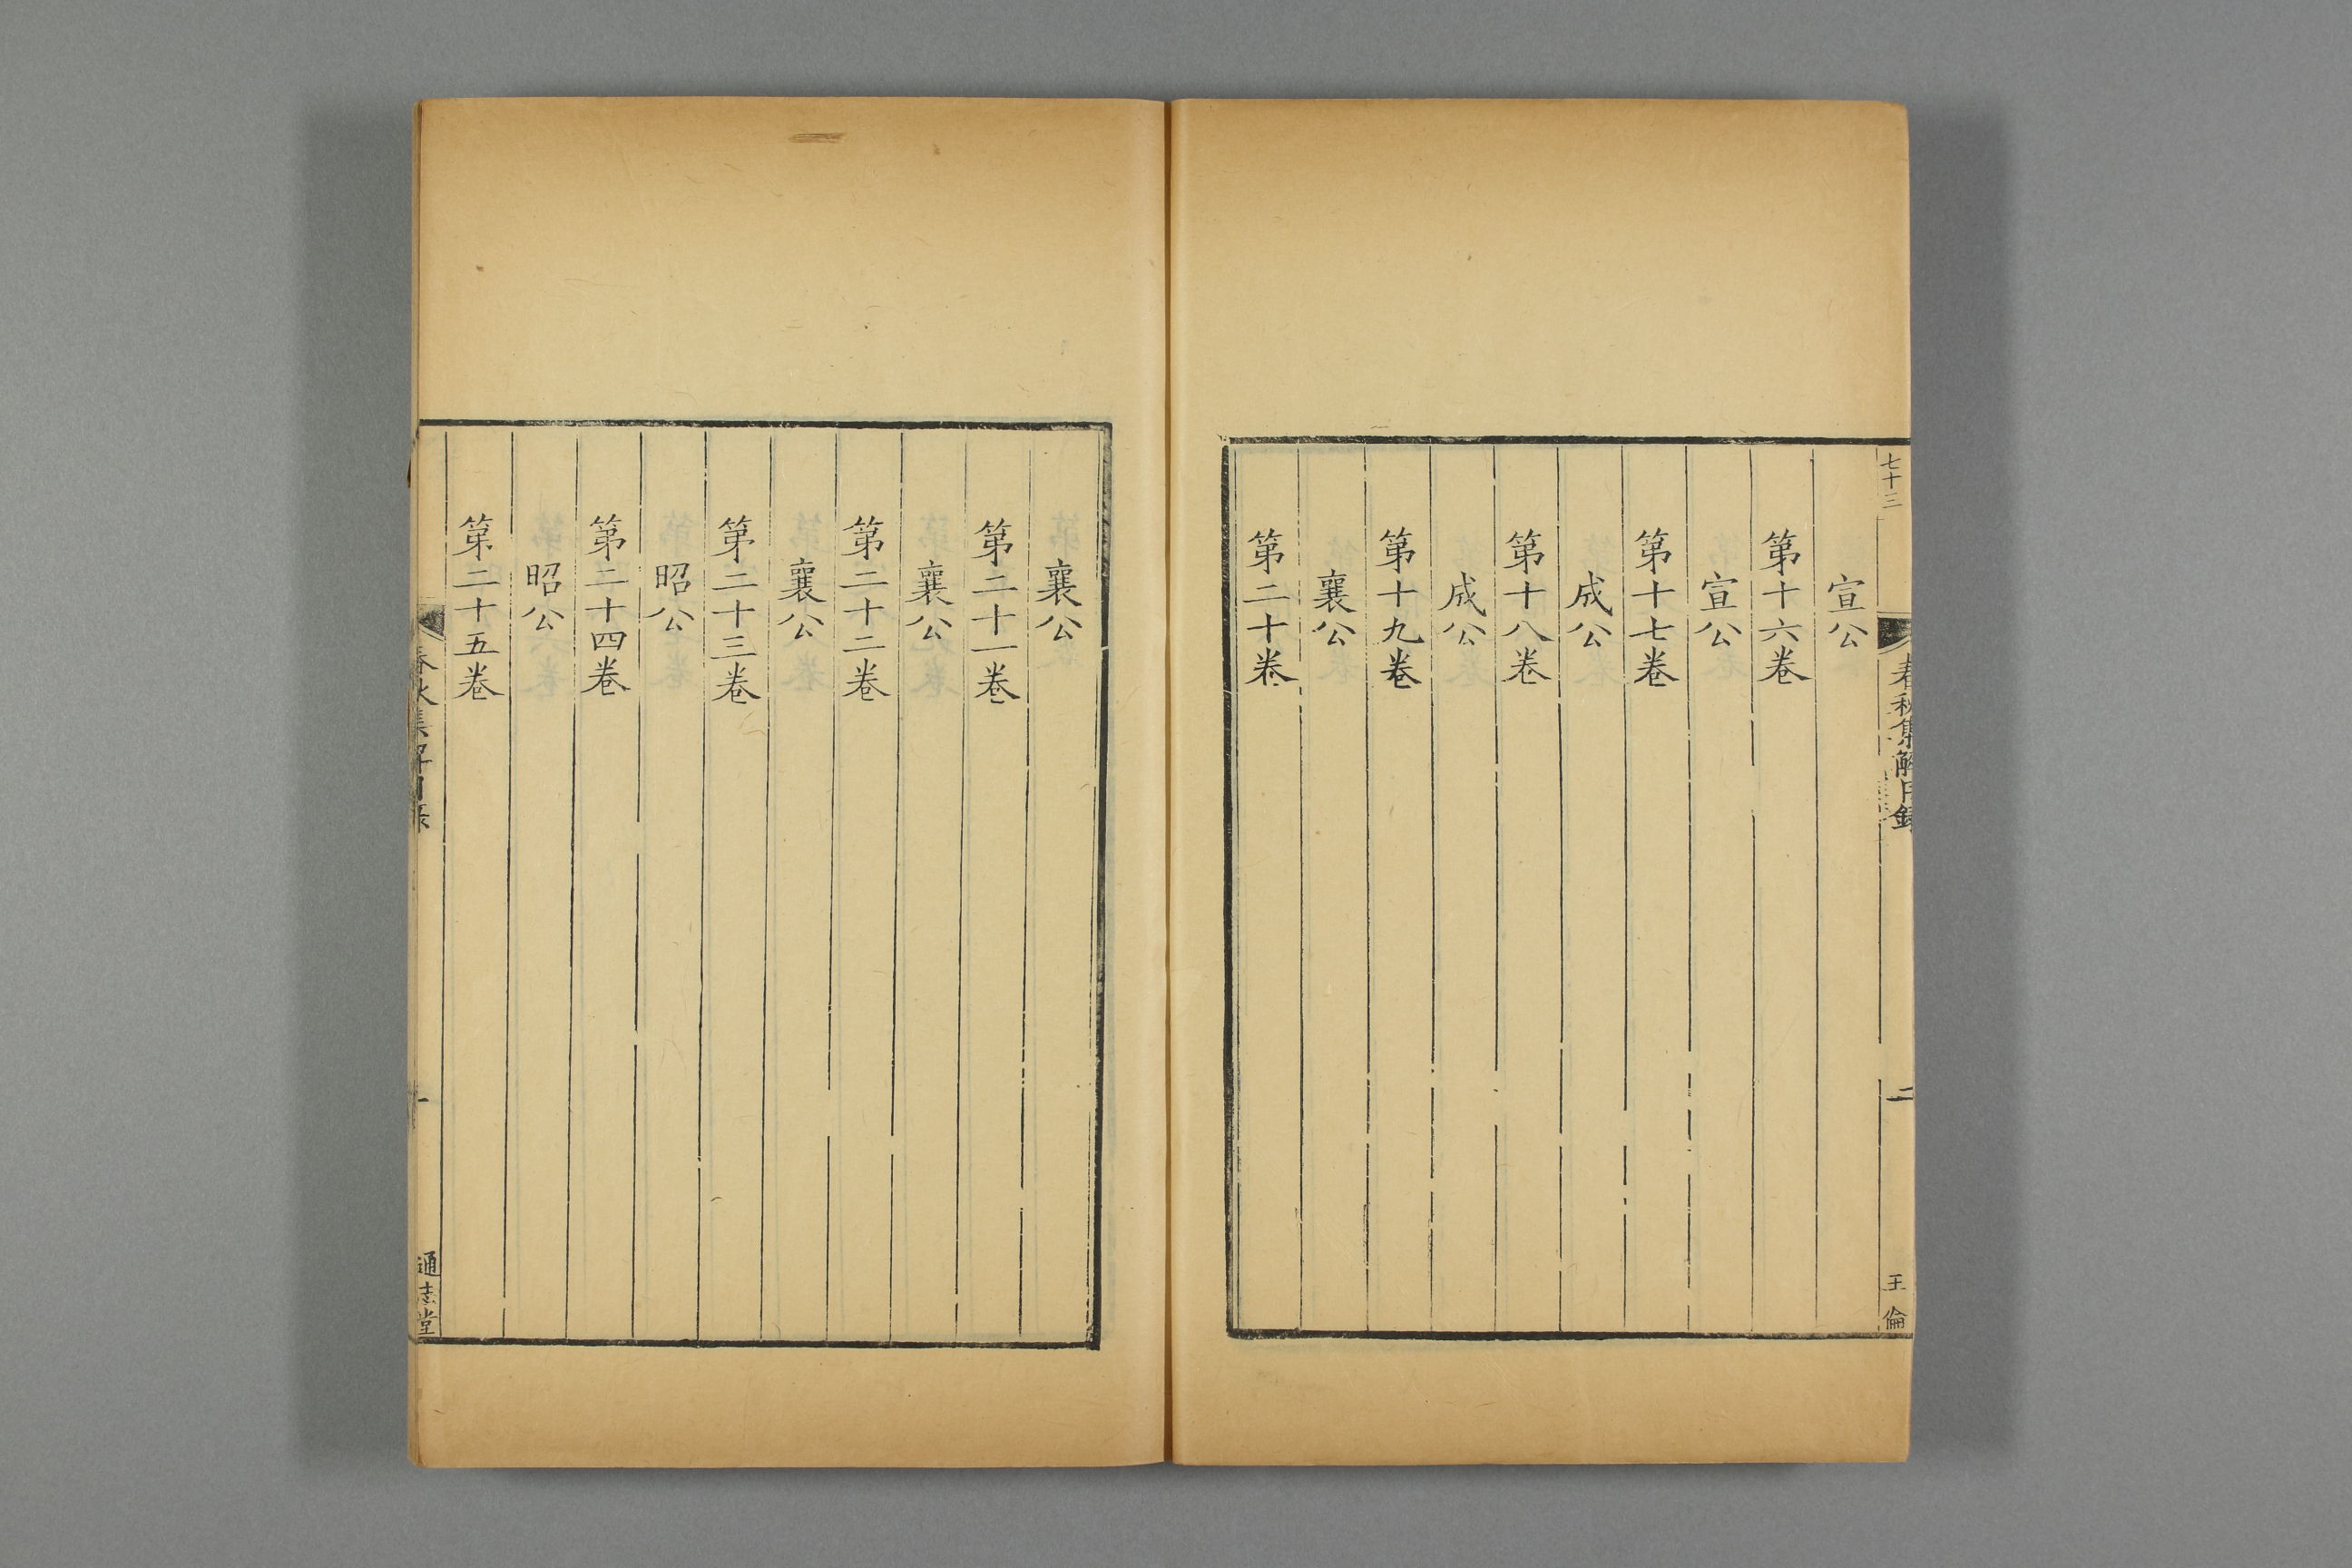 七十三
春秋集解目錄
二
王倫
宣公
第十六卷
宣公
第十七卷
成公
第十八卷
成公
第十九卷
襄公
第二十卷
襄公
第二十一卷
襄公
第二十二卷
襄公
第二十三卷
昭公
第二十四卷
昭公
第二十五卷
春秋集解目錄
通志堂